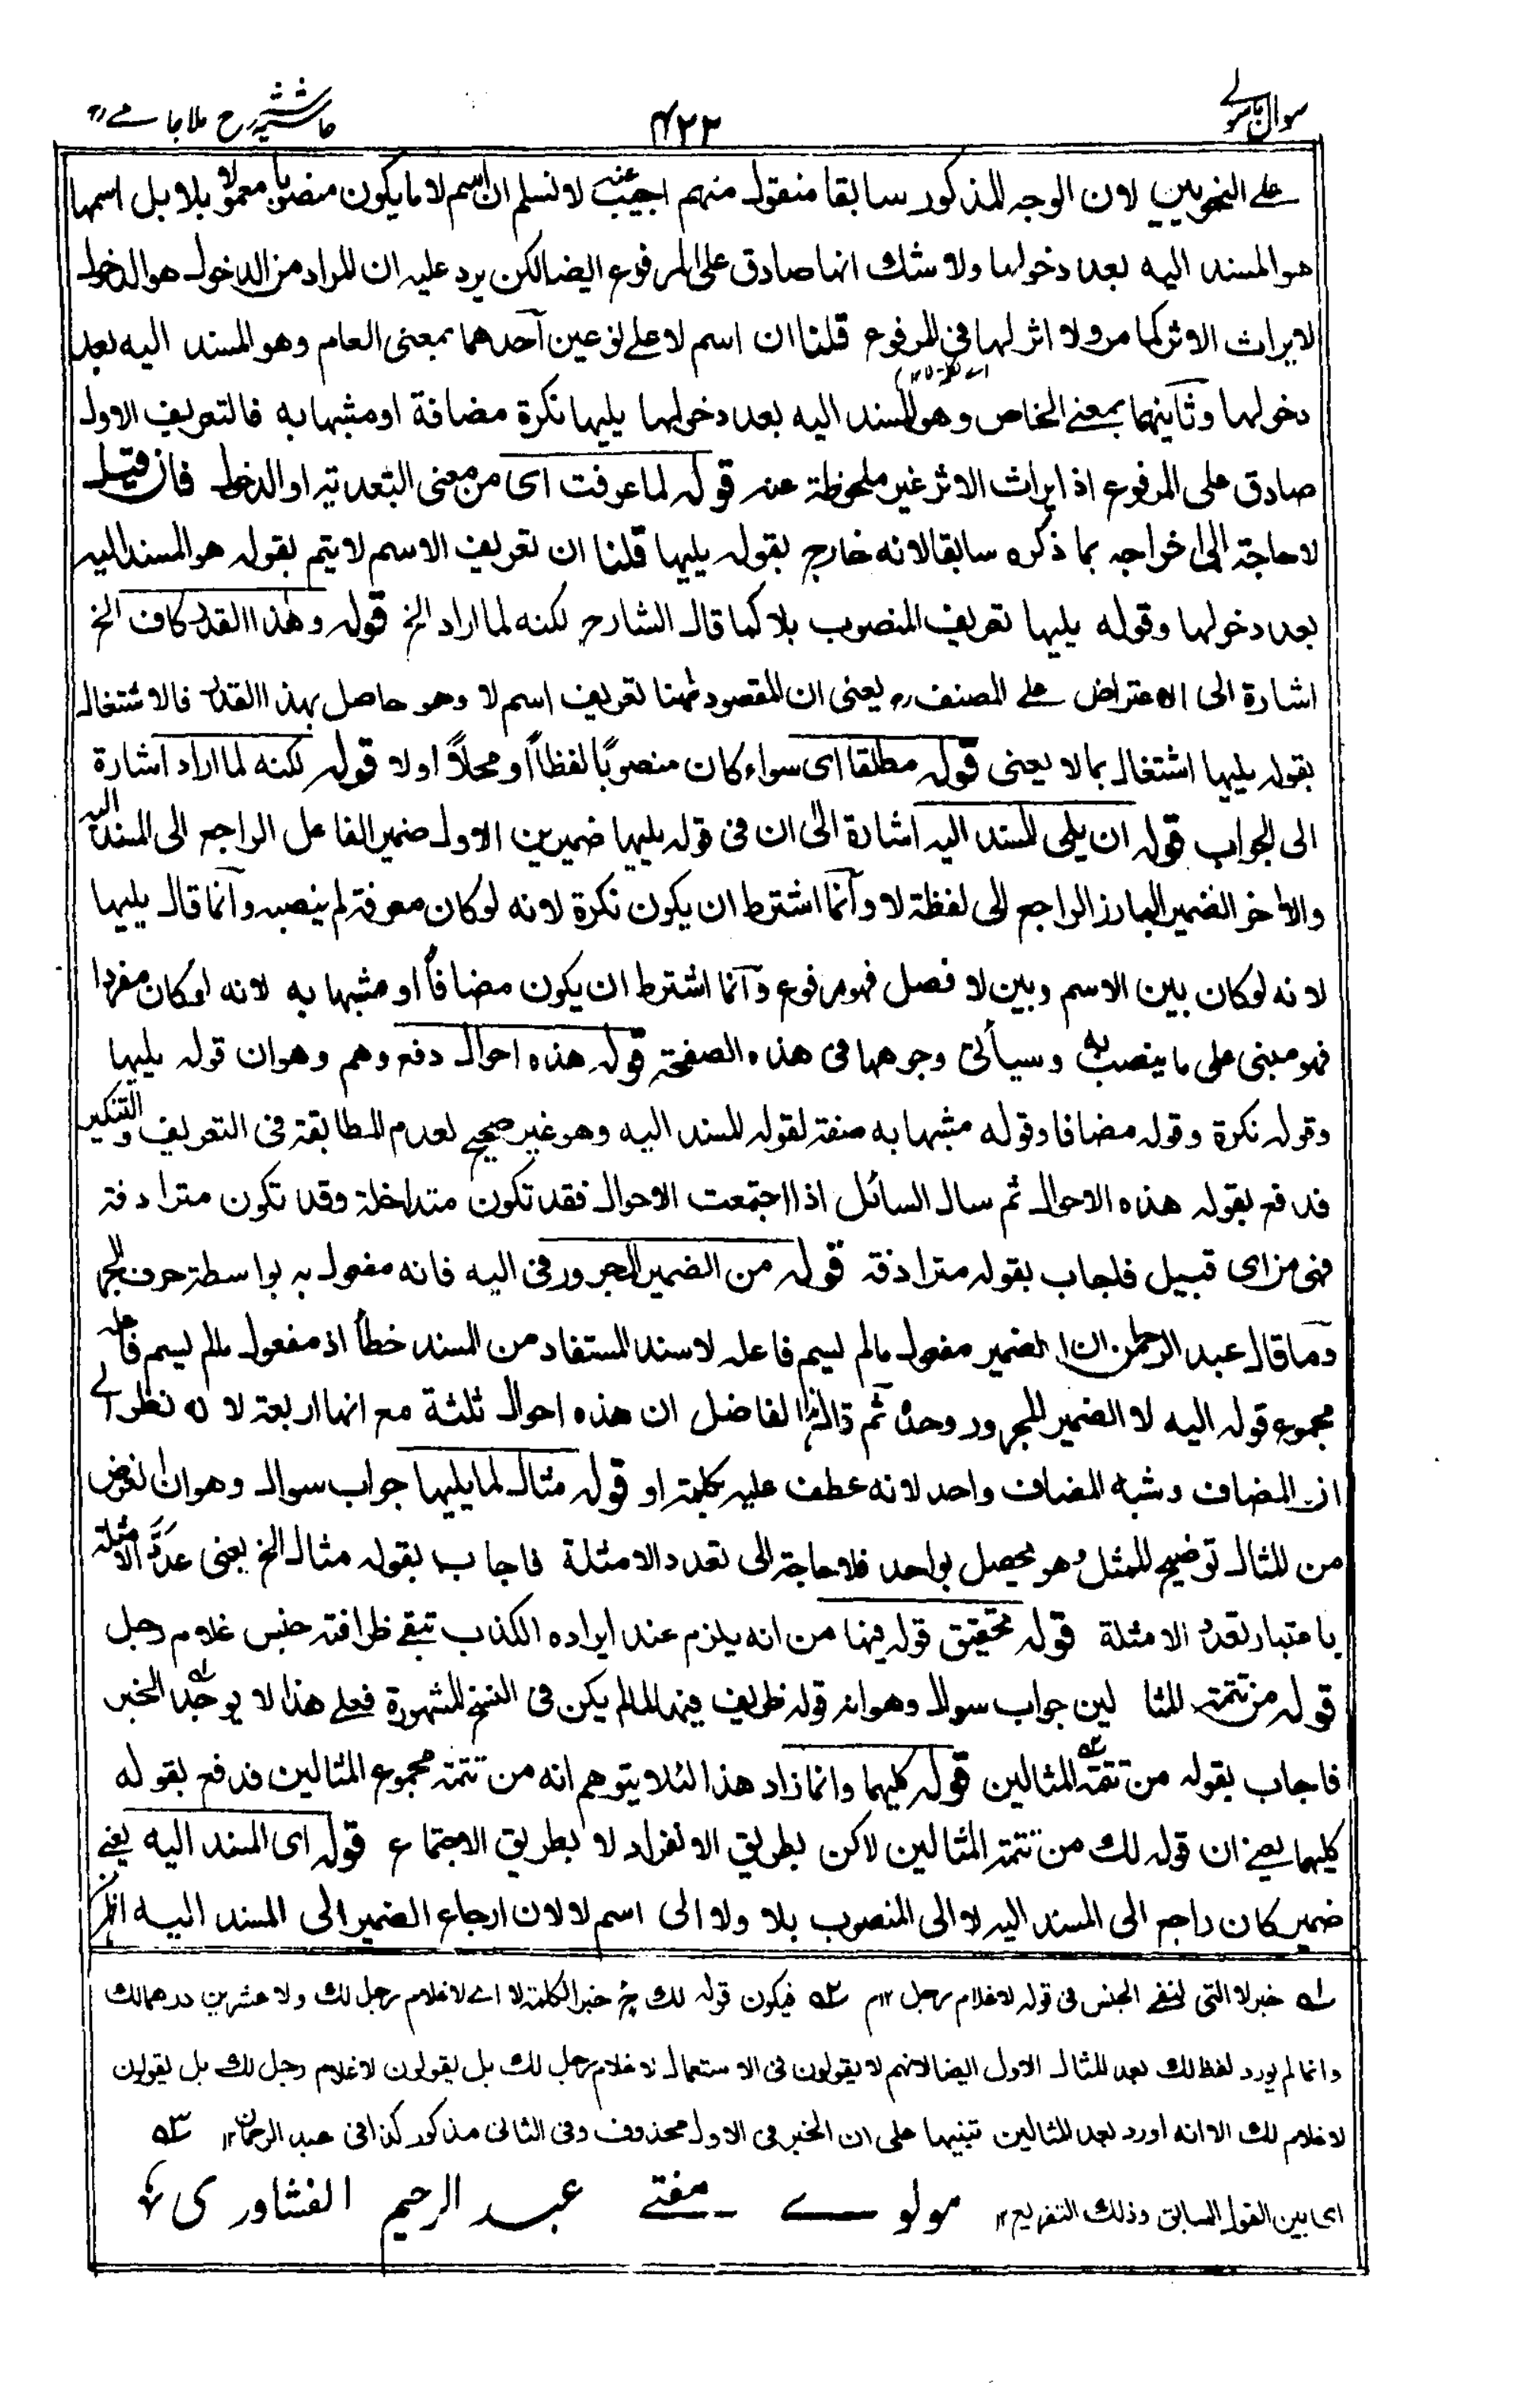 سوال باسولی
۴۲۲
حاشیہ شرح ملا جامی
علی النحویین لان الوجہ المذکور سابقا منقول منہم اجیب عنہ لا نسلم ان اسم لا ما یکون منصوبا معمولا بلا بل اسمہا
ہو المسند الیہ بعد دخولہا ولا شک انہا صادق علی المرفوع ایضا لکن یرد علیہ ان المراد من الدخول ہو الدخول
لایراث الاثر کما مر ولا اثر لہا فی المرفوع قلنا ان اسم لا علی نوعین آحدہما بمعنی العام وہو المسند الیہ بعد
دخولہا وثانیہما بمعنی الخاص وہو المسند الیہ بعد دخولہا یلیہا نکرۃ مضافۃ او مشبہا بہ فالتعریف الاول
صادق علی المرفوع اذ ایراث الاثر غیر ملحوظۃ عنہ قولہ لما عرفت ای من معنی البعدیۃ او الدخول فان قیل
لا حاجۃ الی اخراجہ بما ذکرہ سابقا لانہ خارج بقولہ یلیہا قلنا ان تعریف الاسم لا یتم بقولہ ہو المسند الیہ
بعد دخولہا وقولہ یلیہا تعریف المنصوب بلا کما قال الشارح لکنہ لما اراد الخ قولہ وہذا القدر کاف الخ
اشارۃ الی الاعتراض علی المصنف رہ یعنی ان المقصود ہہنا تعریف اسم لا وہو حاصل بہذا القدر فالاشتغال
بقولہ یلیہا اشتغال بما لا یعنی قولہ مطلقا ای سواء کان منصوبًا لفظاً او محلاً او لا قولہ لکنہ لما اراد اشارۃ
الی الجواب قولہ ان یلی المسند الیہ اشارۃ الی ان فی قولہ یلیہا ضمیرین الاول ضمیر الفاعل الراجع الی المسند الیہ
والاخر الضمیر البارز الراجع الی لفظۃ لا وآنما اشترط ان یکون نکرۃ لانہ لو کان معرفۃ لم ینصبہ وآنما قال یلیہا
لانہ لو کان بین الاسم وبین لا فصل فہو مرفوع وآنما اشترط ان یکون مضافاً او مشبہا بہ لانہ لو کان مفردا
فہو مبنی علی ما ینصب بہ وسیأتی وجوہہا فی ہذہ الصفحۃ قولہ ہذہ احوال دفع وہم وہو ان قولہ یلیہا
وقولہ نکرۃ وقولہ مضافا وقولہ مشبہا بہ صفۃ لقولہ المسند الیہ وہو غیر صحیح لعدم المطابقۃ فی التعریف والتنکیر
فدفع بقولہ ہذہ الاحوال ثم سال السائل اذا اجتمعت الاحوال فقد تکون متداخلۃ وقد تکون مترادفۃ
فہی من ای قبیل فاجاب بقولہ مترادفۃ قولہ من الضمیر المجرور فی الیہ فانہ مفعول بہ بواسطۃ حرف الجر
وما قال عبد الرحمن ان الضمیر مفعول ما لم یسم فاعلہ لاسند المستفاد من المسند خطأ اذ مفعول مالم یسم فاعلہ
مجموع قولہ الیہ لا الضمیر المجرور وحدہ ثم قال ہذا الفاضل ان ہذہ احوال ثلثۃ مع انہا اربعۃ لانہ نظر الی
ان المضاف وشبہ المضاف واحد لانہ عطف علیہ بکلمۃ او قولہ مثال لما یلیہا جواب سوال وہو ان الغرض
من المثال توضیح للمثل وہو یحصل بواحد فلا حاجۃ الی تعدد الامثلۃ فاجاب بقولہ مثال الخ یعنی عدّد الامثلۃ
باعتبار تعدد الامثلۃ قولہ تحقیق قولہ فیہا من انہ یلزم عند ایرادہ الکذب بنفی ظرافۃ جنس غلام رجل
قولہ من تتمۃ المثالین جواب سوال وہو انہ قولہ ظریف فیہا لما لم یکن فی النسخ المشہورۃ فعلی ہذا لا یوجد الخبر
فاجاب بقولہ من تتمۃ المثالین قولہ کلیہما وانما زاد ہذا لئلا یتوہم انہ من تتمۃ مجموع المثالین فدفع بقولہ
کلیہما یعنی ان قولہ لک من تتمۃ المثالین لاکن بطریق الانفراد لا بطریق الاجتماع قولہ ای المسند الیہ یعنی
ضمیر کان راجع الی المسند الیہ لا الی المنصوب بلا ولا الی اسم لا لان ارجاع الضمیر الی المسند الیہ اظہر
لہ خبر لا التی لنفی الجنس فی قولہ لا غلام رجل ۱۲م ۲ہ فیکون قولہ لک خبر الکلمۃ لا اے لا غلام رجل لک ولا عشرین درہما لک
وانما لم یورد لفظ لک بعد المثال الاول ایضا لانہم لا یقولون فی الاستعمال لا غلام رجل لک بل یقولون لا غلام رجل لک بل یقولون
لا غلام لک الا انہ اورد بعد المثالین تنبیہا علی ان الخبر فی الاول محذوف وفی الثانی مذکور کذا فی عبد الرحمان ۱۲ ۳ہ
ای بین القول السابق وذلک التفریع ۱۲ مولوی مفتی عبد الرحیم الفشاوری